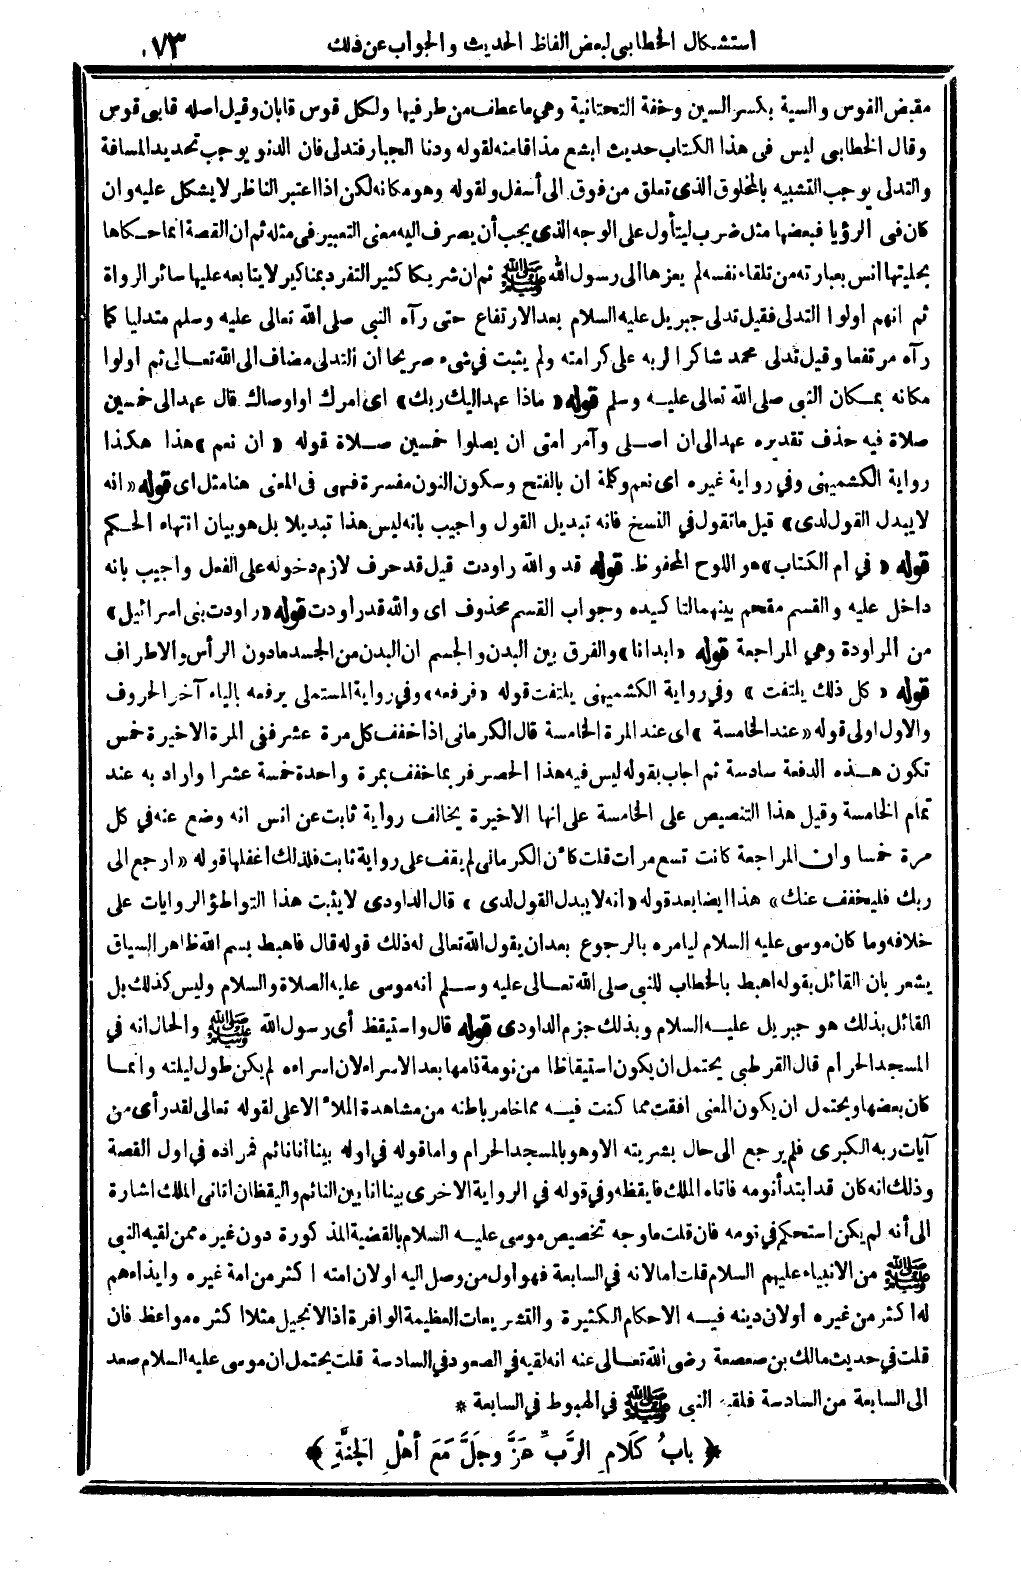 استشكال الخطابي لبعض الفاظ الحديث والجواب عن ذلك ١٧٣
مقبض القوس والسية بكسر السين وخفة التحتانية وهي ما عطف من طرفيها ولكل قوس قابان وقيل اصله قابي قوس
وقال الخطابي ليس في هذا الكتاب حديث ابشع مذاقا منه لقوله ودنا الجبار فتدلى فان الدنو يوجب تحديد المسافة
والتدلي يوجب التشبيه بالمخلوق الذي تعلق من فوق الى أسفل ولقوله وهو مكانه لكن اذا اعتبر الناظر لا يشكل عليه وان
كان في الرؤيا فبعضها مثل ضرب ليتأول على الوجه الذي يجب أن يصرف اليه معنى التعبير في مثله ثم ان القصة انما حكاها
بحليتها انس بعبارته من تلقاء نفسه لم يعزها الى رسول الله ﷺ ثم ان شريكا كثير التفرد بمناكير لا يتابعه عليها سائر الرواة
ثم انهم اولوا التدلى فقيل تدلى جبريل عليه السلام بعد الارتفاع حتى رآه النبي صلى الله تعالى عليه وسلم متدليا كما
رآه مرتفعا وقيل تدلى محمد شاكرا لربه على كرامته ولم يثبت في شيء صريحا ان التدلى مضاف الى الله تعالى ثم اولوا
مكانه بمكان النبي صلى الله تعالى عليه وسلم قوله «ماذا عهد اليك ربك» اى امرك او اوصاك قال عهد الى خمسين
صلاة فيه حذف تقديره عهد الى ان اصلى وآمر امتى ان يصلوا خمسين صلاة قوله «ان نعم» هذا هكذا
رواية الكشميهني وفي رواية غيره اى نعم وكلمة ان بالفتح وسكون النون مفسرة فهى فى المعنى هنا مثل اى قوله «انه
لا يبدل القول لدى» قيل ما تقول في النسخ فانه تبديل القول واجيب بانه ليس هذا تبديلا بل هو بيان انتهاء الحكم
قوله «في ام الكتاب» هو اللوح المحفوظ. قوله قد والله راودت قيل قد حرف لازم دخوله على الفعل واجيب بانه
داخل عليه والقسم مقحم بينهما لتاكيده وجواب القسم محذوف اى والله قد راودت قوله «راودت بنى اسرائيل»
من المراودة وهي المراجعة قوله «ابدانا» والفرق بين البدن والجسم ان البدن من الجسد مادون الرأس والاطراف
قوله «كل ذلك يلتفت» وفي رواية الكشميهنى يلتفت قوله «فرفعه» وفي رواية المستملى يرفعه بالياء آخر الحروف
والاول اولى قوله «عند الخامسة» اى عند المرة الخامسة قال الكرمانى اذا خفف كل مرة عشر ففى المرة الاخيرة خمس
تكون هذه الدفعة سادسة ثم اجاب بقوله ليس فيه هذا الحصر فربما خفف بمرة واحدة خمسة عشرا واراد به عند
تمام الخامسة وقيل هذا التنصيص على الخامسة على انها الاخيرة يخالف رواية ثابت عن انس انه وضع عنه في كل
مرة خمسا وان المراجعة كانت تسع مرات قلت كأن الكرمانى لم يقف على رواية ثابت فلذلك اغفلها قوله «ارجع الى
ربك فليخفف عنك» هذا ايضا بعد قوله «انه لا يبدل القول لدى» قال الداودى لا يثبت هذا التواطؤ الروايات على
خلافه وما كان موسى عليه السلام ليامره بالرجوع بعد ان يقول الله تعالى له ذلك قوله قال فاهبط بسم الله ظاهر السياق
يشعر بان القائل بقوله اهبط بالخطاب للنبي صلى الله تعالى عليه وسلم انه موسى عليه الصلاة والسلام وليس كذلك بل
القائل بذلك هو جبريل عليه السلام وبذلك جزم الداودى قوله قال واستيقظ أى رسول الله ﷺ والحال انه في
المسجد الحرام قال القرطبي يحتمل ان يكون استيقاظا من نومة نامها بعد الاسراء لان اسراءه لم يكن طول ليلته وانما
كان بعضها ويحتمل ان يكون المعنى افقت مما كنت فيه مما خامر باطنه من مشاهدة الملأ الاعلى لقوله تعالى لقد رأى من
آيات ربه الكبرى فلم يرجع الى حال بشريته الا وهو بالمسجد الحرام واما قوله في اوله بينا انا نائم فمراده في اول القصة
وذلك انه كان قد ابتدأ نومه فاتاه الملك فايقظه وفي قوله في الرواية الاخرى بينا انا بين النائم واليقظان اتانى الملك اشارة
الى أنه لم يكن استحكم في نومه فان قلت ما وجه تخصيص موسى عليه السلام بالقضية المذكورة دون غيره ممن لقيه النبى
ﷺ من الانبياء عليهم السلام قلت اما لانه في السابعة فهو اول من وصل اليه او لان امته اكثر من امة غيره وايذاءهم
له اكثر من غيره أو لان دينه فيه الاحكام الكثيرة والتشريعات العظيمة الوافرة اذ الانجيل مثلا اكثره مواعظ فان
قلت في حديث مالك بن صعصعة رضى الله تعالى عنه انه لقيه في الصعود في السادسة قلت يحتمل ان موسى عليه السلام صعد
الى السابعة من السادسة فلقيه النبى ﷺ في الهبوط في السابعة *
﴿ بابُ كَلَامِ الرَّبِّ عَزَّ وجَلَّ مَعَ أهْلِ الجَنَّةِ ﴾